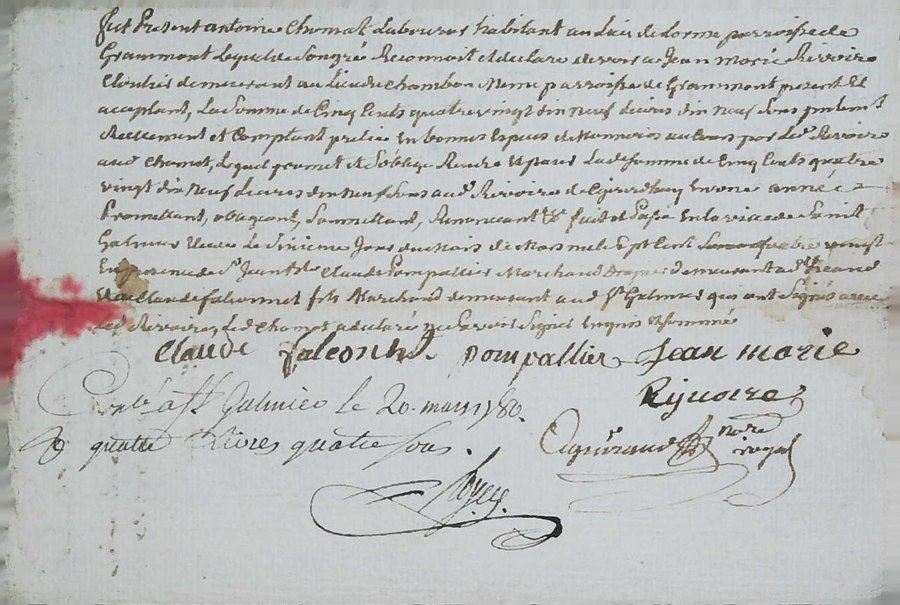 fut Present antoine Chomat Laboureur habitant au Lieu de Lorme parroisse de
Grammont Lequel de Son gré Reconnoit et declare devoir a Jean marie Rivoire
demeurant au Lieu de Chambon Meme parroisse de Grammont present Et
acceptant, La Somme de Cinq Cents quatre vingt dix neuf Livres dix neuf Sous
Reellement et Comptant En bonnes Especes de Monnoies au Cours par Led. Rivoire
aud. Chomat, Lequel promet et S'oblige Rendre Et paier Lad. Somme de Cinq Cents quatre
vingt dix neuf Livres dix neuf Sous aud. Rivoire En une année
Promettant, obligeant, Soumettant, Renoncant &c. fait et Passé En la ville de Saint
Galmier Le Sixieme Jour du Mois de Mars mil Sept Cent quatre vingt
En presence de Sr. Claude Pompallier Marchand Demeurant
Claude falconnet fils Marchand demeurant aud. St. Galmier qui ont Signés avec
Led. Rivoire, Led. Chomat a declaré ne Savoir Signer Enquis et Sommé
Claude falconnet pompallier Jean marie
Rivoire
Conlé. a St. Galmier le 20. mars 1780.
quatre Livres quatre Sous.
nore
royal